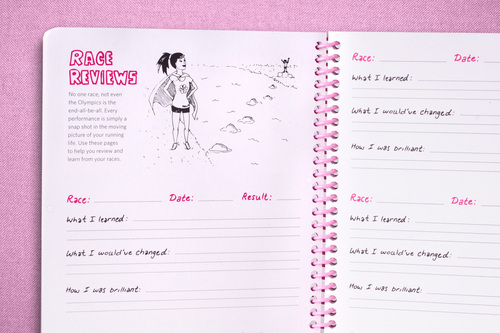 RACE
REVIEWS
No one race, not even
the Olympics is the
end-all-be-all. Every
performance is simply a
snap shot in the moving
picture of your running
life. Use these pages
to help you review and
learn from your races.
Race: Date: Result:
What I learned:
What I would've changed:
How I was brilliant:
Race: Date:
What I learned:
What I would've changed:
How I was brilliant:
Race: Date:
What I learned:
What I would've changed:
How I was brilliant: